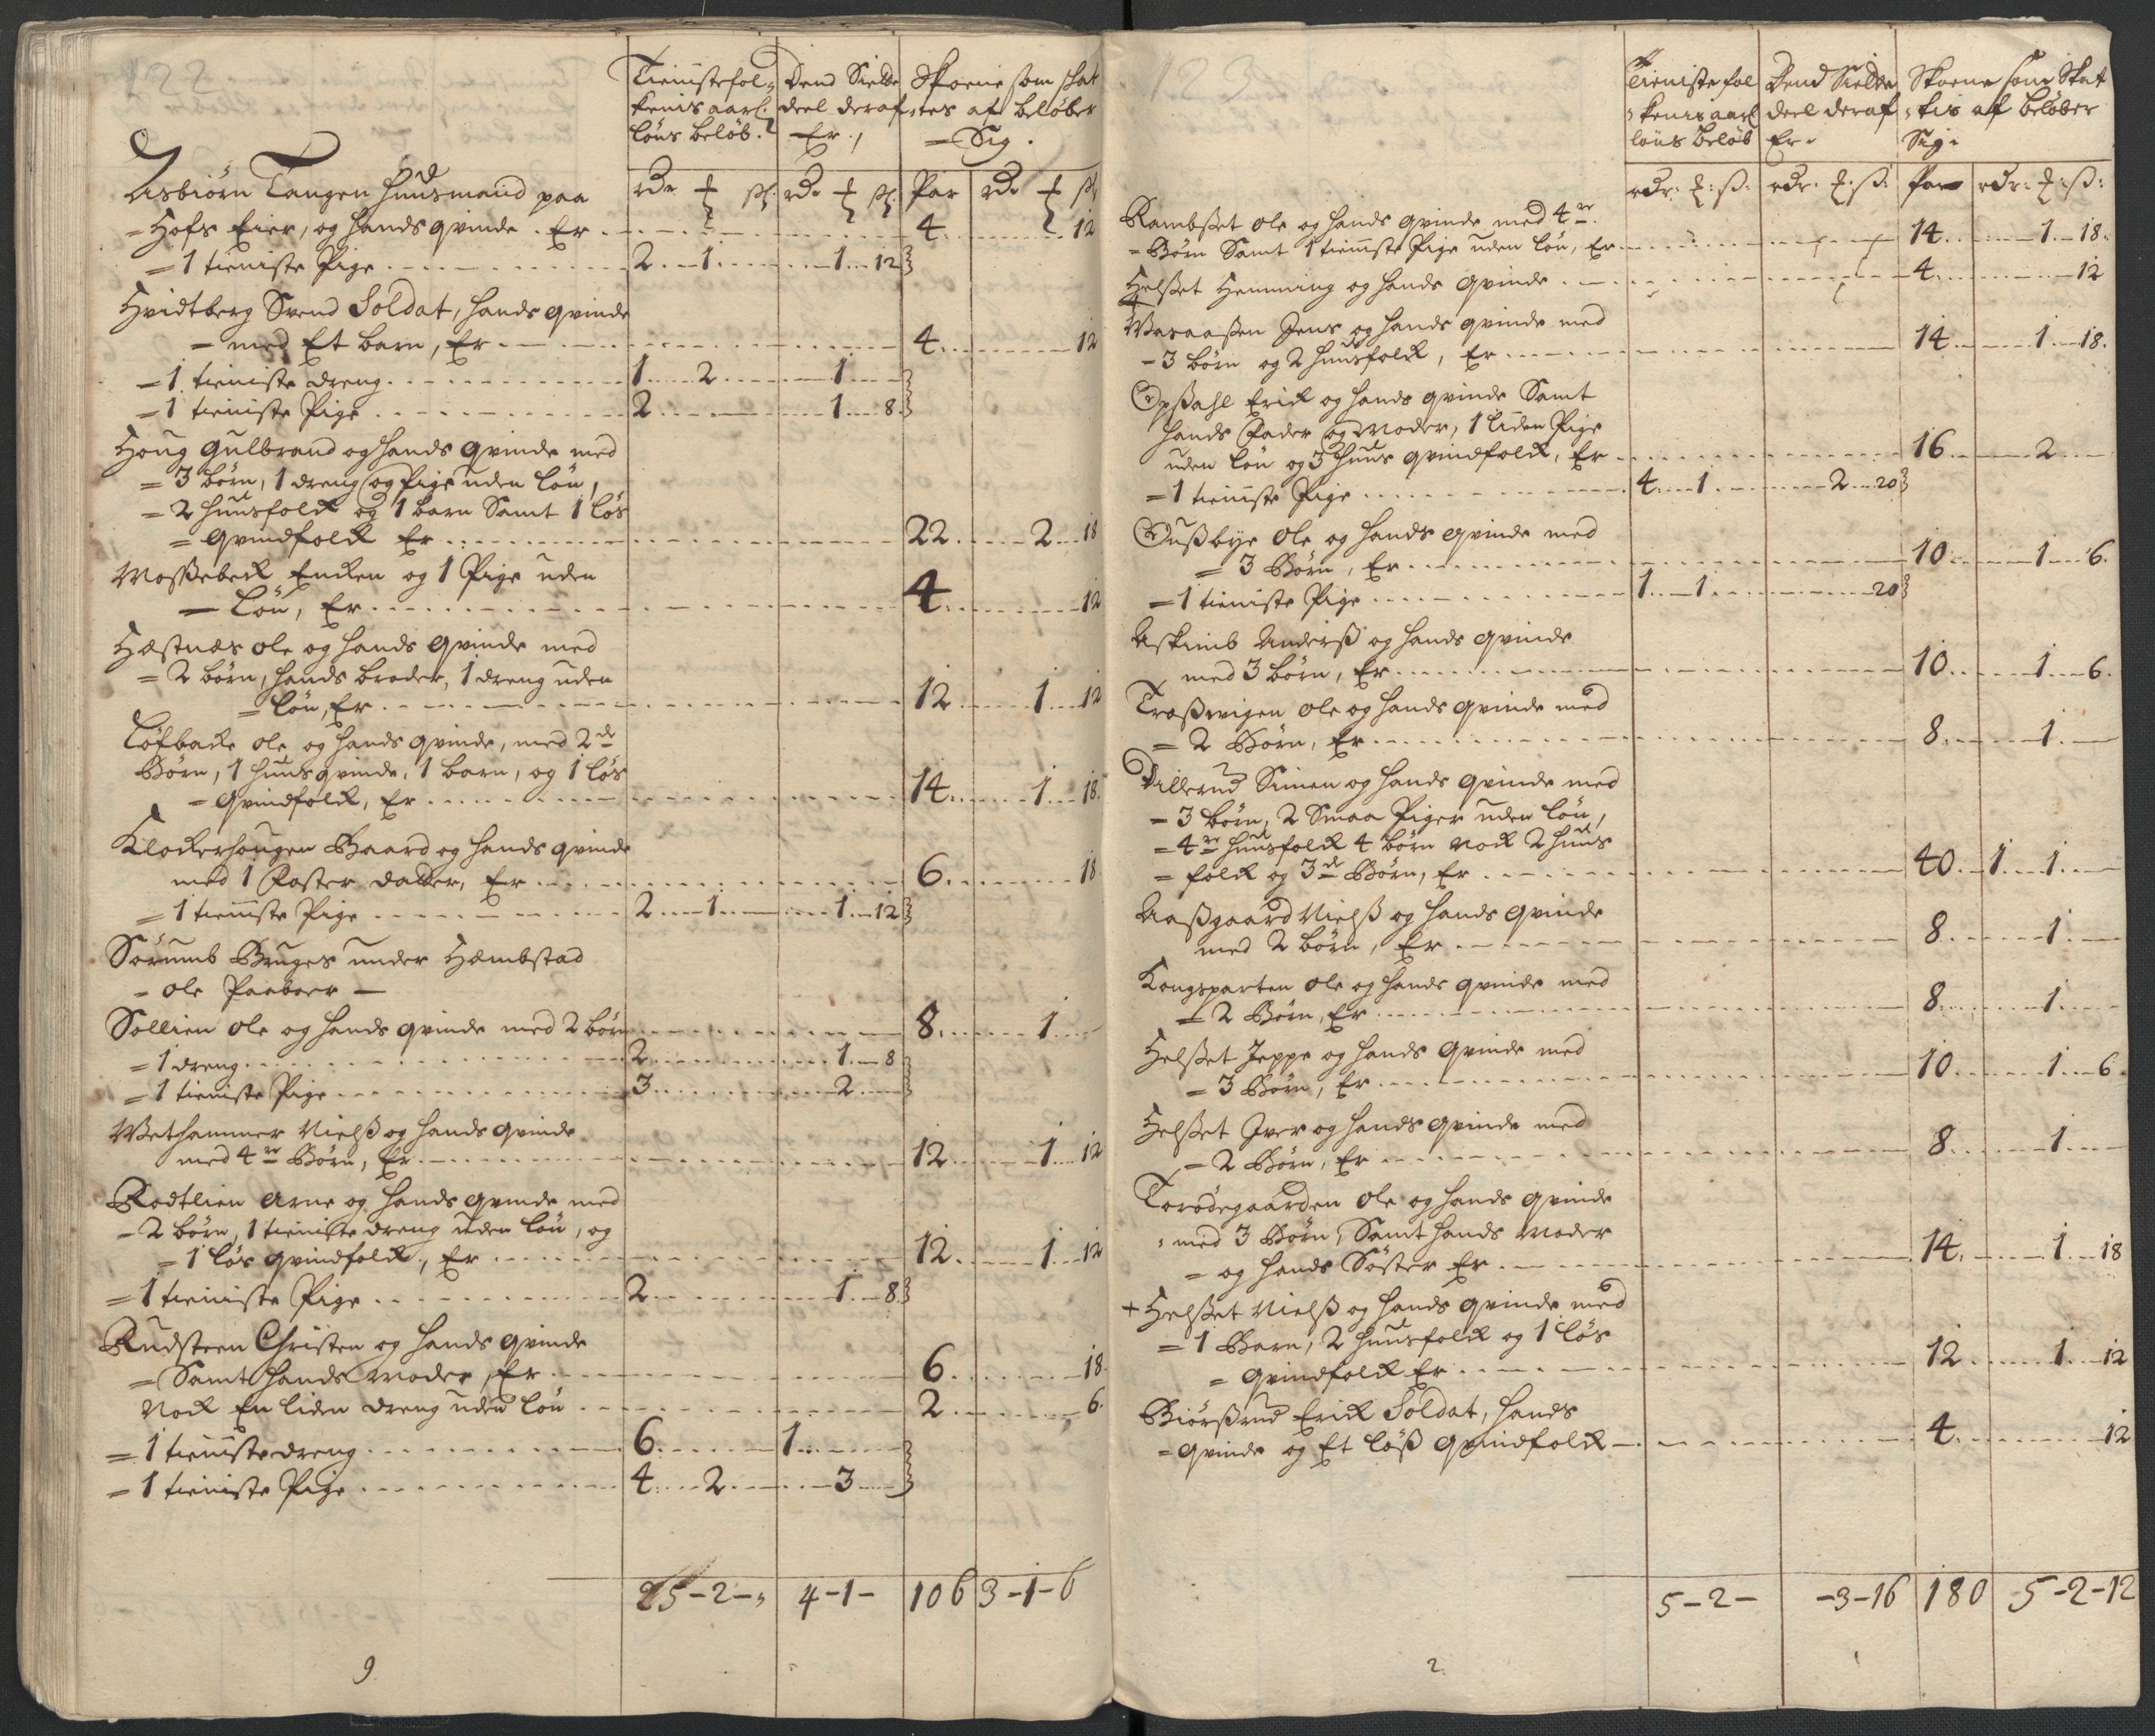 122
Tienistefol¬ Dend Siette Skoene som skat
kenis aarl. deel deraf tes af beløber
løns beløb. Er / = Sig.
Asbiørn Tangen Huusmand paa rdr ß rdr ß Par rdr ß
= Hofs Eier, og hands qvinde. Er 4 12
= 1 tieniste Pige 2 1 1 12
Hvidtberg Svend Soldat, hands qvinde
= med Et barn, Er 4 12
= 1 tieniste dreng 1 2 1
= 1 tieniste Pige 2 1 8
Houg Gulbrand og hands qvinde med
= 3 børn, 1 dreng og Pige uden løn,
= 2 huusfolck og 1 barn Samt 1 løs
= qvindfolck Er 22 2 18
Mossebeck Encken og 1 Pige uden
= Løn, Er 4 12
Hæstnæs ole og hands qvinde med
= 2 børn, hands broder, 1 dreng uden
= løn, Er 12 1 12
Løfbacke ole og hands qvinde, med 2de
Børn, 1 huusqvinde, 1 barn, og 1 løs
= qvindfolck, Er 14 1 18
Klockerhougen Baard og hands qvinde
med 1 Foster datter, Er 6 18
= 1 tieniste Pige 2 1 1 12
Sørumb Bruges under Hembstad
= ole Paaboer —
Sollien ole og hands qvinde med 2 børn 8 1
= 1 dreng 2 1 8
= 1 tieniste Pige 3 2
Wethammer Nielß og hands qvinde
med 4re Børn, Er 12 1 12
Rodtlien Arne og hands qvinde med
= 2 børn, 1 tieniste dreng uden løn, og
= 1 løs qvindfolck, Er 12 1 12
= 1 tieniste Pige 2 1 8
Rudsteen Christen og hands qvinde
= Samt hands Moder, Er 6 18
Nock En liden dreng uden løn 2 6
= 1 tienistedreng 6 1
= 1 tieniste Pige 4 2 3
25-2- 4-1- 106 3-1-6
9
123
Tieniste fol Dend Siette Skoene som Skat
kenis aarl deel deraf tis af beløber
løns beløb Er. Sig.
rdr: ß: rdr. ß: Par rdr: ß:
Rambset ole og hands qvinde med 4re
= Børn Samt 1 tieniste Pige uden løn, Er 14 1 18
Helset Hemming og hands qvinde 4 12
Wasaasen Jens og hands qvinde med
= 3 børn og 2 huusfolck, Er 14 1 18
Opsahl Erick og hands qvinde Samt
hands Fader og Moder, 1 liden Pige
uden løn og 3 huus qvindfolck, Er 16 2
= 1 tieniste Pige 4 1 2 20
Oußbye ole og hands qvinde med
= 3 Børn, Er 10 1 6
= 1 tieniste Pige 1 1 20
Askimb Anderß og hands qvinde
med 3 børn, Er 10 1 6
Troßwigen ole og hands qvinde med
= 2 Børn, Er 8 1
Dillerud Simen og hands qvinde med
= 3 børn, 2 Smaa Piger uden løn,
= 4re huusfolck 4 børn Nock 2 huus
= folck og 3de Børn, Er 40 1 1
Aaßgaard Nielß og hands qvinde
med 2 børn, Er 8 1
Kongsparten ole og hands qvinde med
= 2 Børn, Er 8 1
Helset Jeppe og hands qvinde med
= 3 Børn, Er 10 1 6
Helset Iver og hands qvinde med
= 2 Børn, Er 8 1
Torødegaarden ole og hands qvinde
= med 3 Børn, Samt hands Moder
= og hands Søster Er 14 1 18
+ Helset Nielß og hands qvinde med
= 1 Barn, 2 huusfolck og 1 løs
= qvindfolck Er 12 1 12
Biørßrud Erick Soldat, hands
= qvinde og Et løß qvindfolck 4 12
5-2- -3-16 180 5-2-12
2